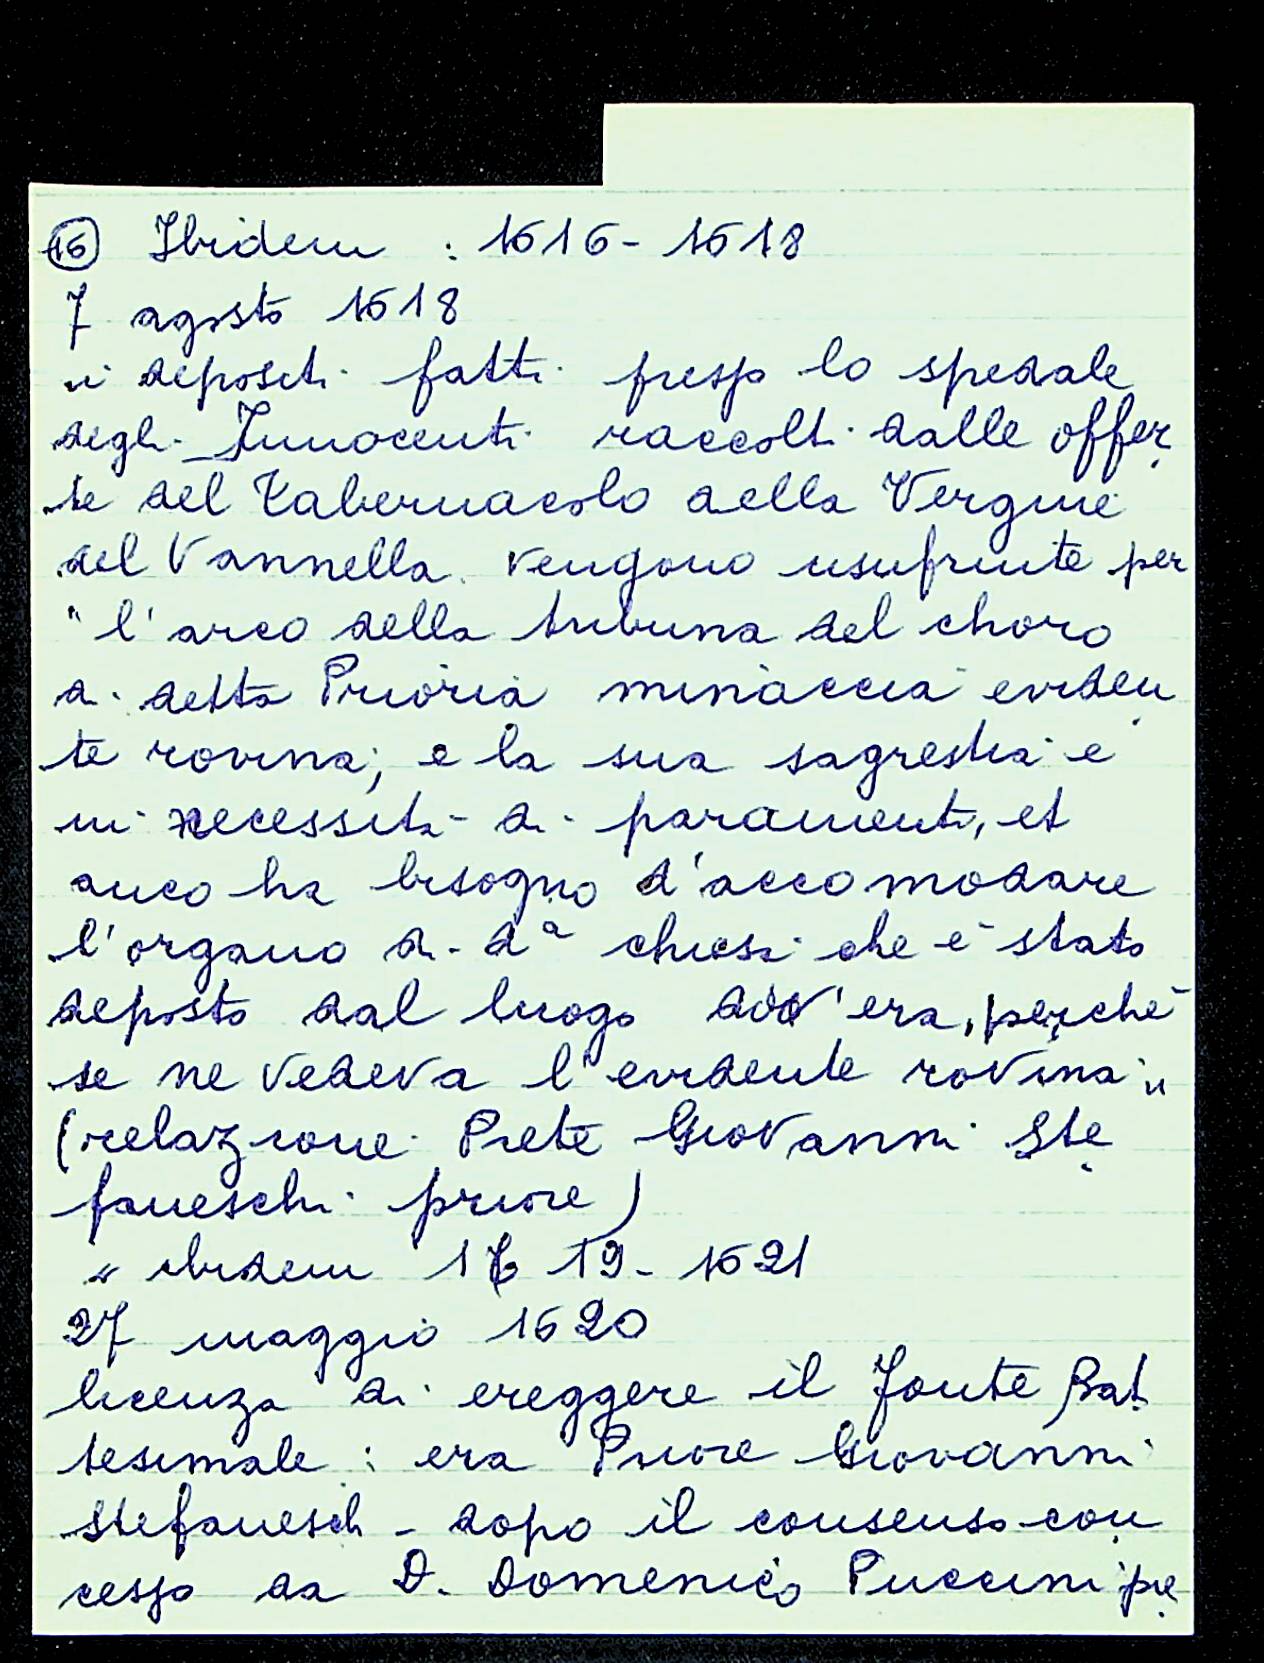 16 Ibidem : 1616 - 1618
7 agosto 1618
i depositi fatti presso lo spedale
degli Innocenti raccolti dalle offer
te del Tabernacolo della Vergine
del Vannella vengono usufruite per
"l'arco della tribuna del choro
di detta Prioria minaccia eviden
te rovina; e la sua sagrestia è
in necessità di paramenti, et
anco ha bisogno d'accomodare
l'organo di dª chiesa che è stato
deposto dal luogo dov'era, perchè
se ne vedeva l'evidente rovina"
(relazione Prete Giovanni Ste
faneschi priore)
" ibidem 1619 - 1621
27 maggio 1620
licenza di ereggere il fonte Bat
tesimale : era Priore Giovanni
Stefanesch - dopo il consenso con
cesso da D. Domenico Puccini pre